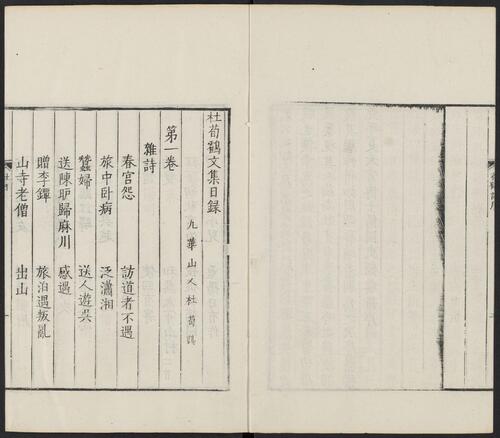 杜荀鶴文集目録
九華山人杜荀鶴
第一卷
雜詩
春宮怨 訪道者不遇
旅中卧病 泛瀟湘
蠶婦 送人遊吳
送陳昈歸麻川 感遇
贈李鐸 旅泊遇叛亂
山寺老僧 出山